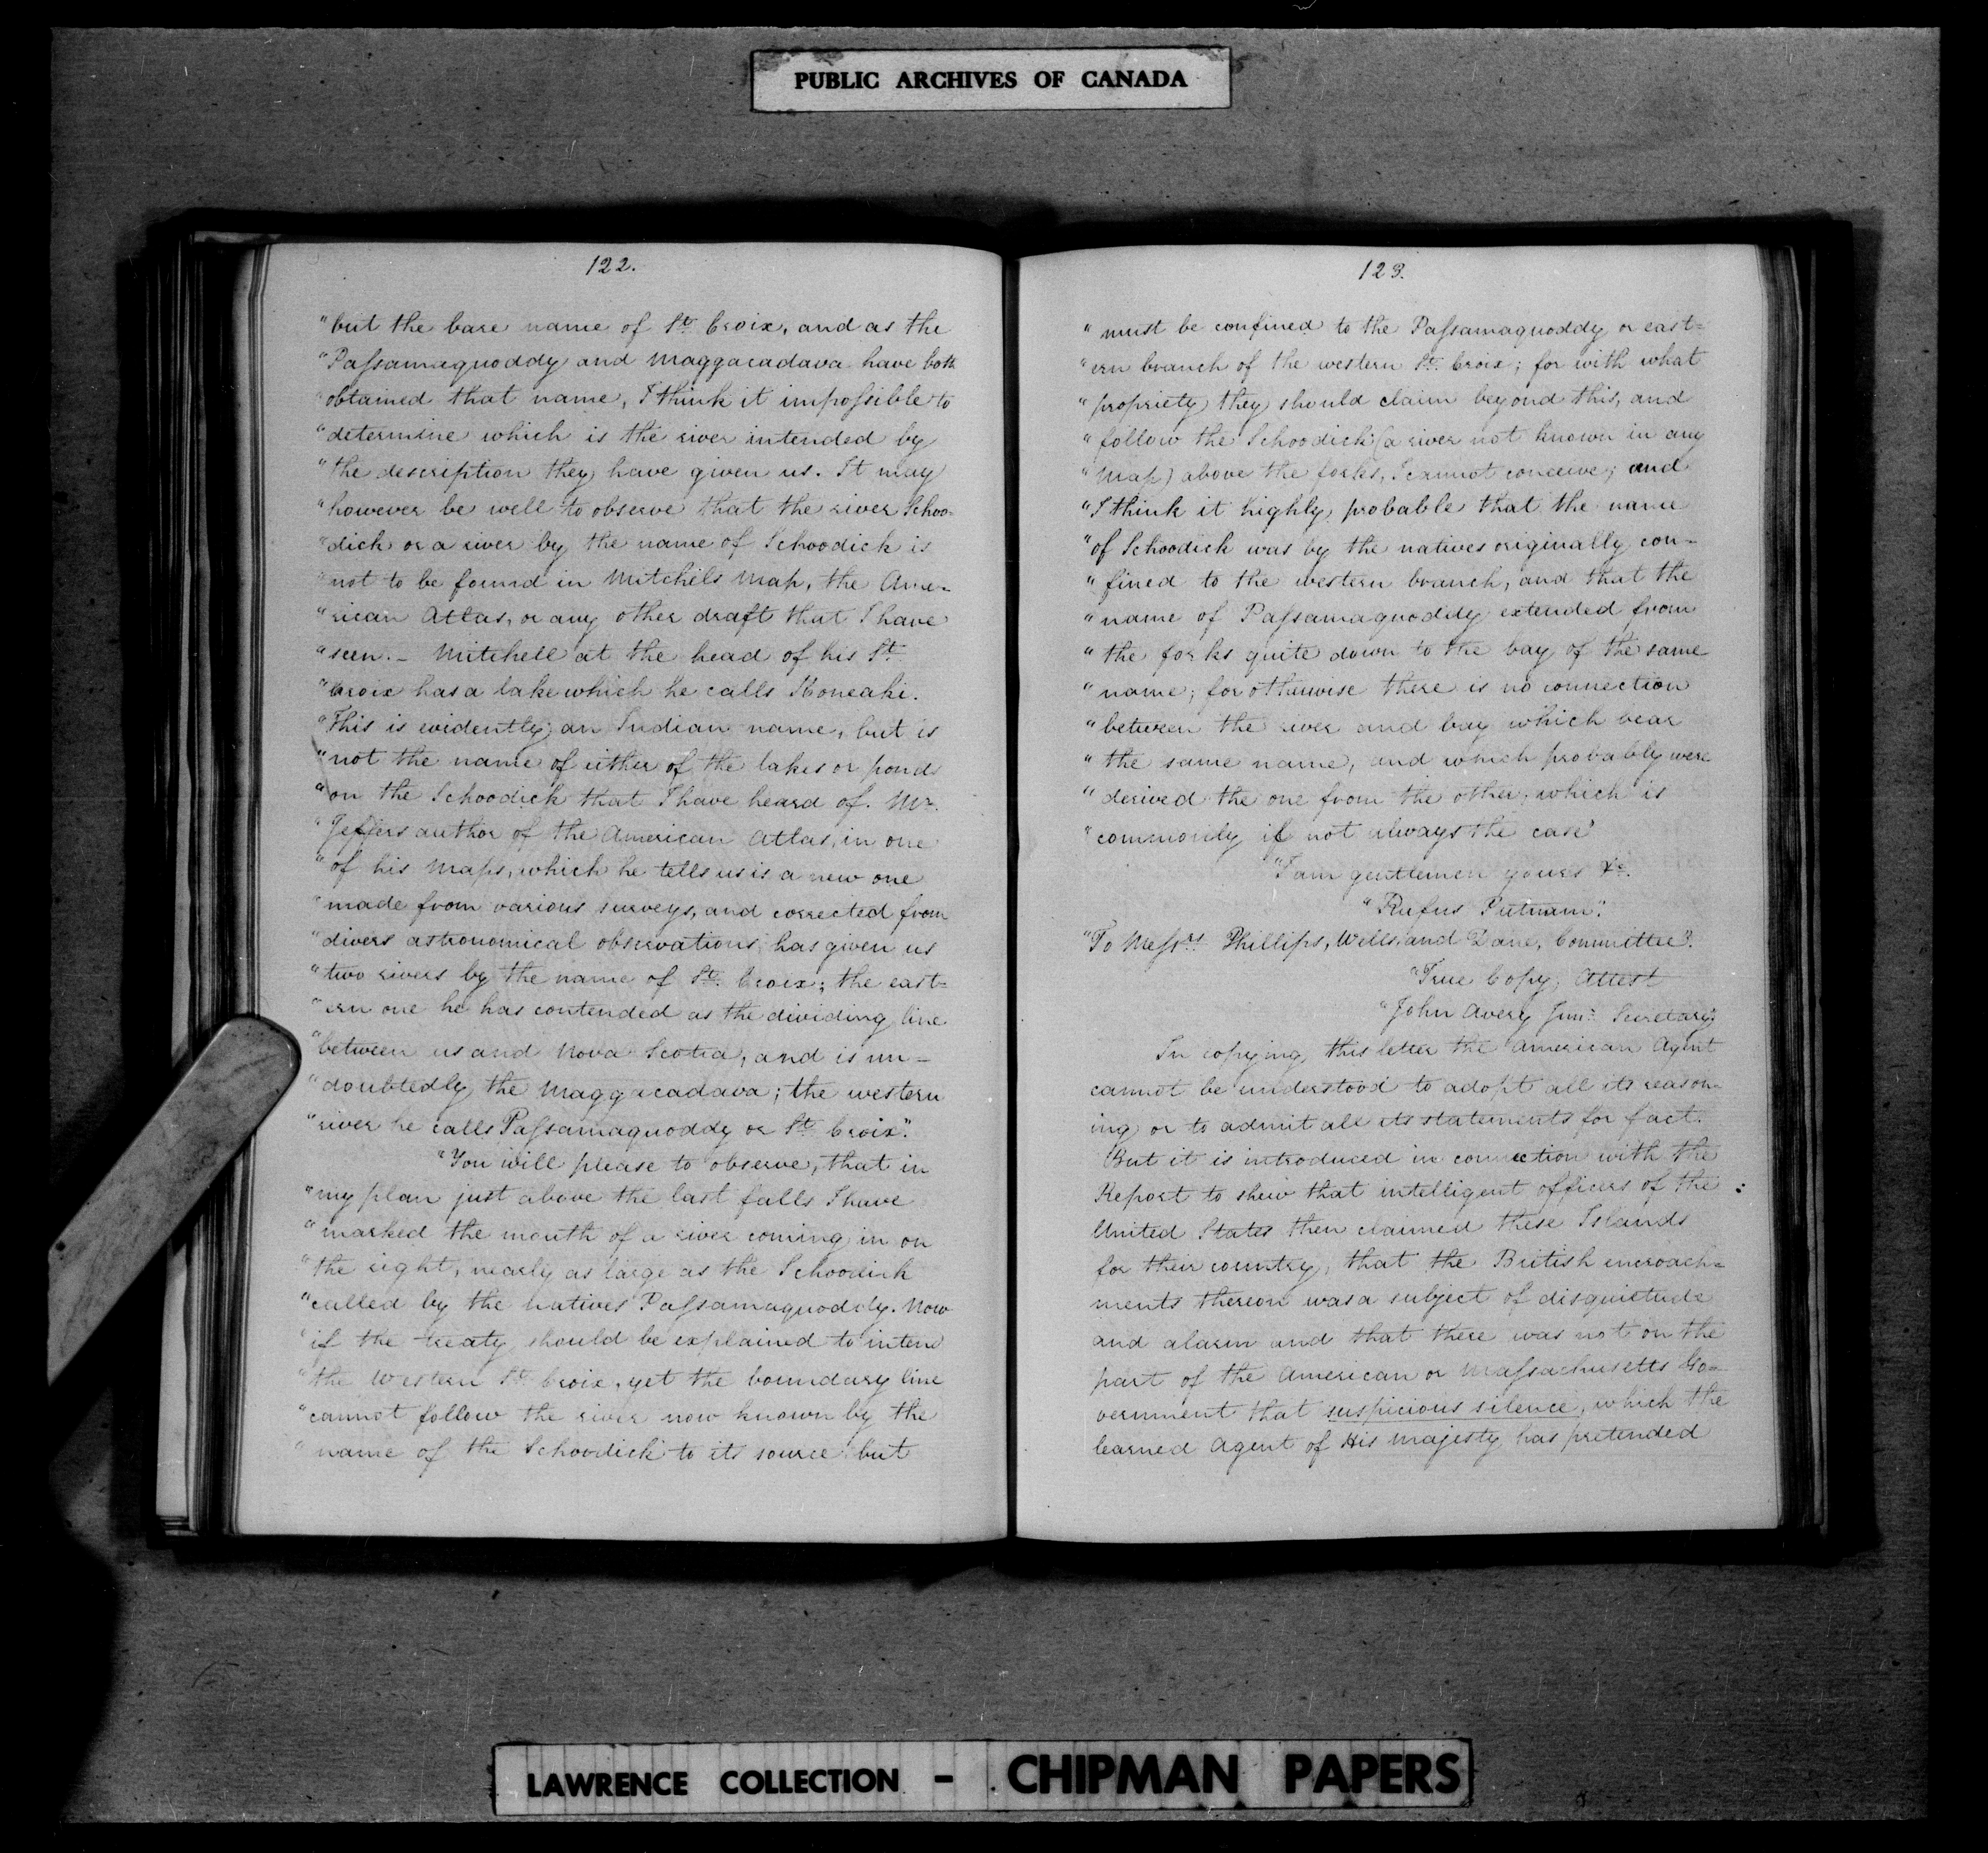 PUBLIC ARCHIVES OF CANADA
122.
"but the bare name of St. Croix, and as the
"Passamaquoddy and Maggacadava have both
"obtained that name, I think it impossible to
"determine which is the river intended by
"the description they have given us. It may
"however be well to observe that the river Schoo-
"dick or a river by the name of Schoodick is
"not to be found in Mitchels Map, the Ame-
"rican Atlas, or any other draft that I have
"seen. – Mitchell at the head of his St.
"Croix has a lake which he calls Koneaki.
"This is evidently an Indian name, but is
"not the name of either of the lakes or ponds
"on the Schoodick that I have heard of. Mr.
"Jeffers author of the American Atlas, in one
"of his Maps, which he tells us is a new one
"made from various surveys, and corrected from
"divers astronomical observations has given us
"two rivers by the name of St. Croix; the east=
"ern one he has contended as the dividing line
"between us and Nova Scotia, and is un-
"doubtedly the Maggacadava; the western
"river he calls Passamaquoddy or St. Croix".
"You will please to observe, that in
"my plan just above the last falls I have
"marked the mouth of a river coming in on
"the right, nearly as large as the Schoodick
"called by the natives Passamaquoddy. Now
"if the treaty should be explained to intend
"the Western St. Croix, yet the boundary line
"cannot follow the river now known by the
"name of the Schoodick to its source but
123.
"must be confined to the Passamaquoddy or east=
"ern branch of the western St. Croix; for with what
"propriety they should claim beyond this, and
"follow the Schoodick (a river not known in any
"Map) above the forks, I cannot conceive; and
"I think it highly probable that the name
"of Schoodick was by the natives originally con-
"fined to the western branch, and that the
"name of Passamaquoddy extended from
"the forks quite down to the bay of the same
"name; for otherwise there is no connection
"between the river and bay which bear
"the same name, and which probably were
"derived the one from the other, which is
"commonly if not always the case"
"I am gentlemen yours &c.
"Rufus Putnam".
"To Messrs. Phillips, Wells, and Dane, Committee".
"True Copy, Attest
"John Avery Junr. Secretary"
In copying this letter the American Agent
cannot be understood to adopt all its reason-
ing or to admit all its statements for fact.
But it is introduced in connection with the
Report to shew that intelligent officers of the
United States then claimed these Islands
for their country, that the British encroach=
ments thereon was a subject of disquietude
and alarm and that there was not on the
part of the American or Massachusetts Go=
vernment that suspicious silence, which the
learned Agent of His Majesty has pretended
LAWRENCE COLLECTION - CHIPMAN PAPERS